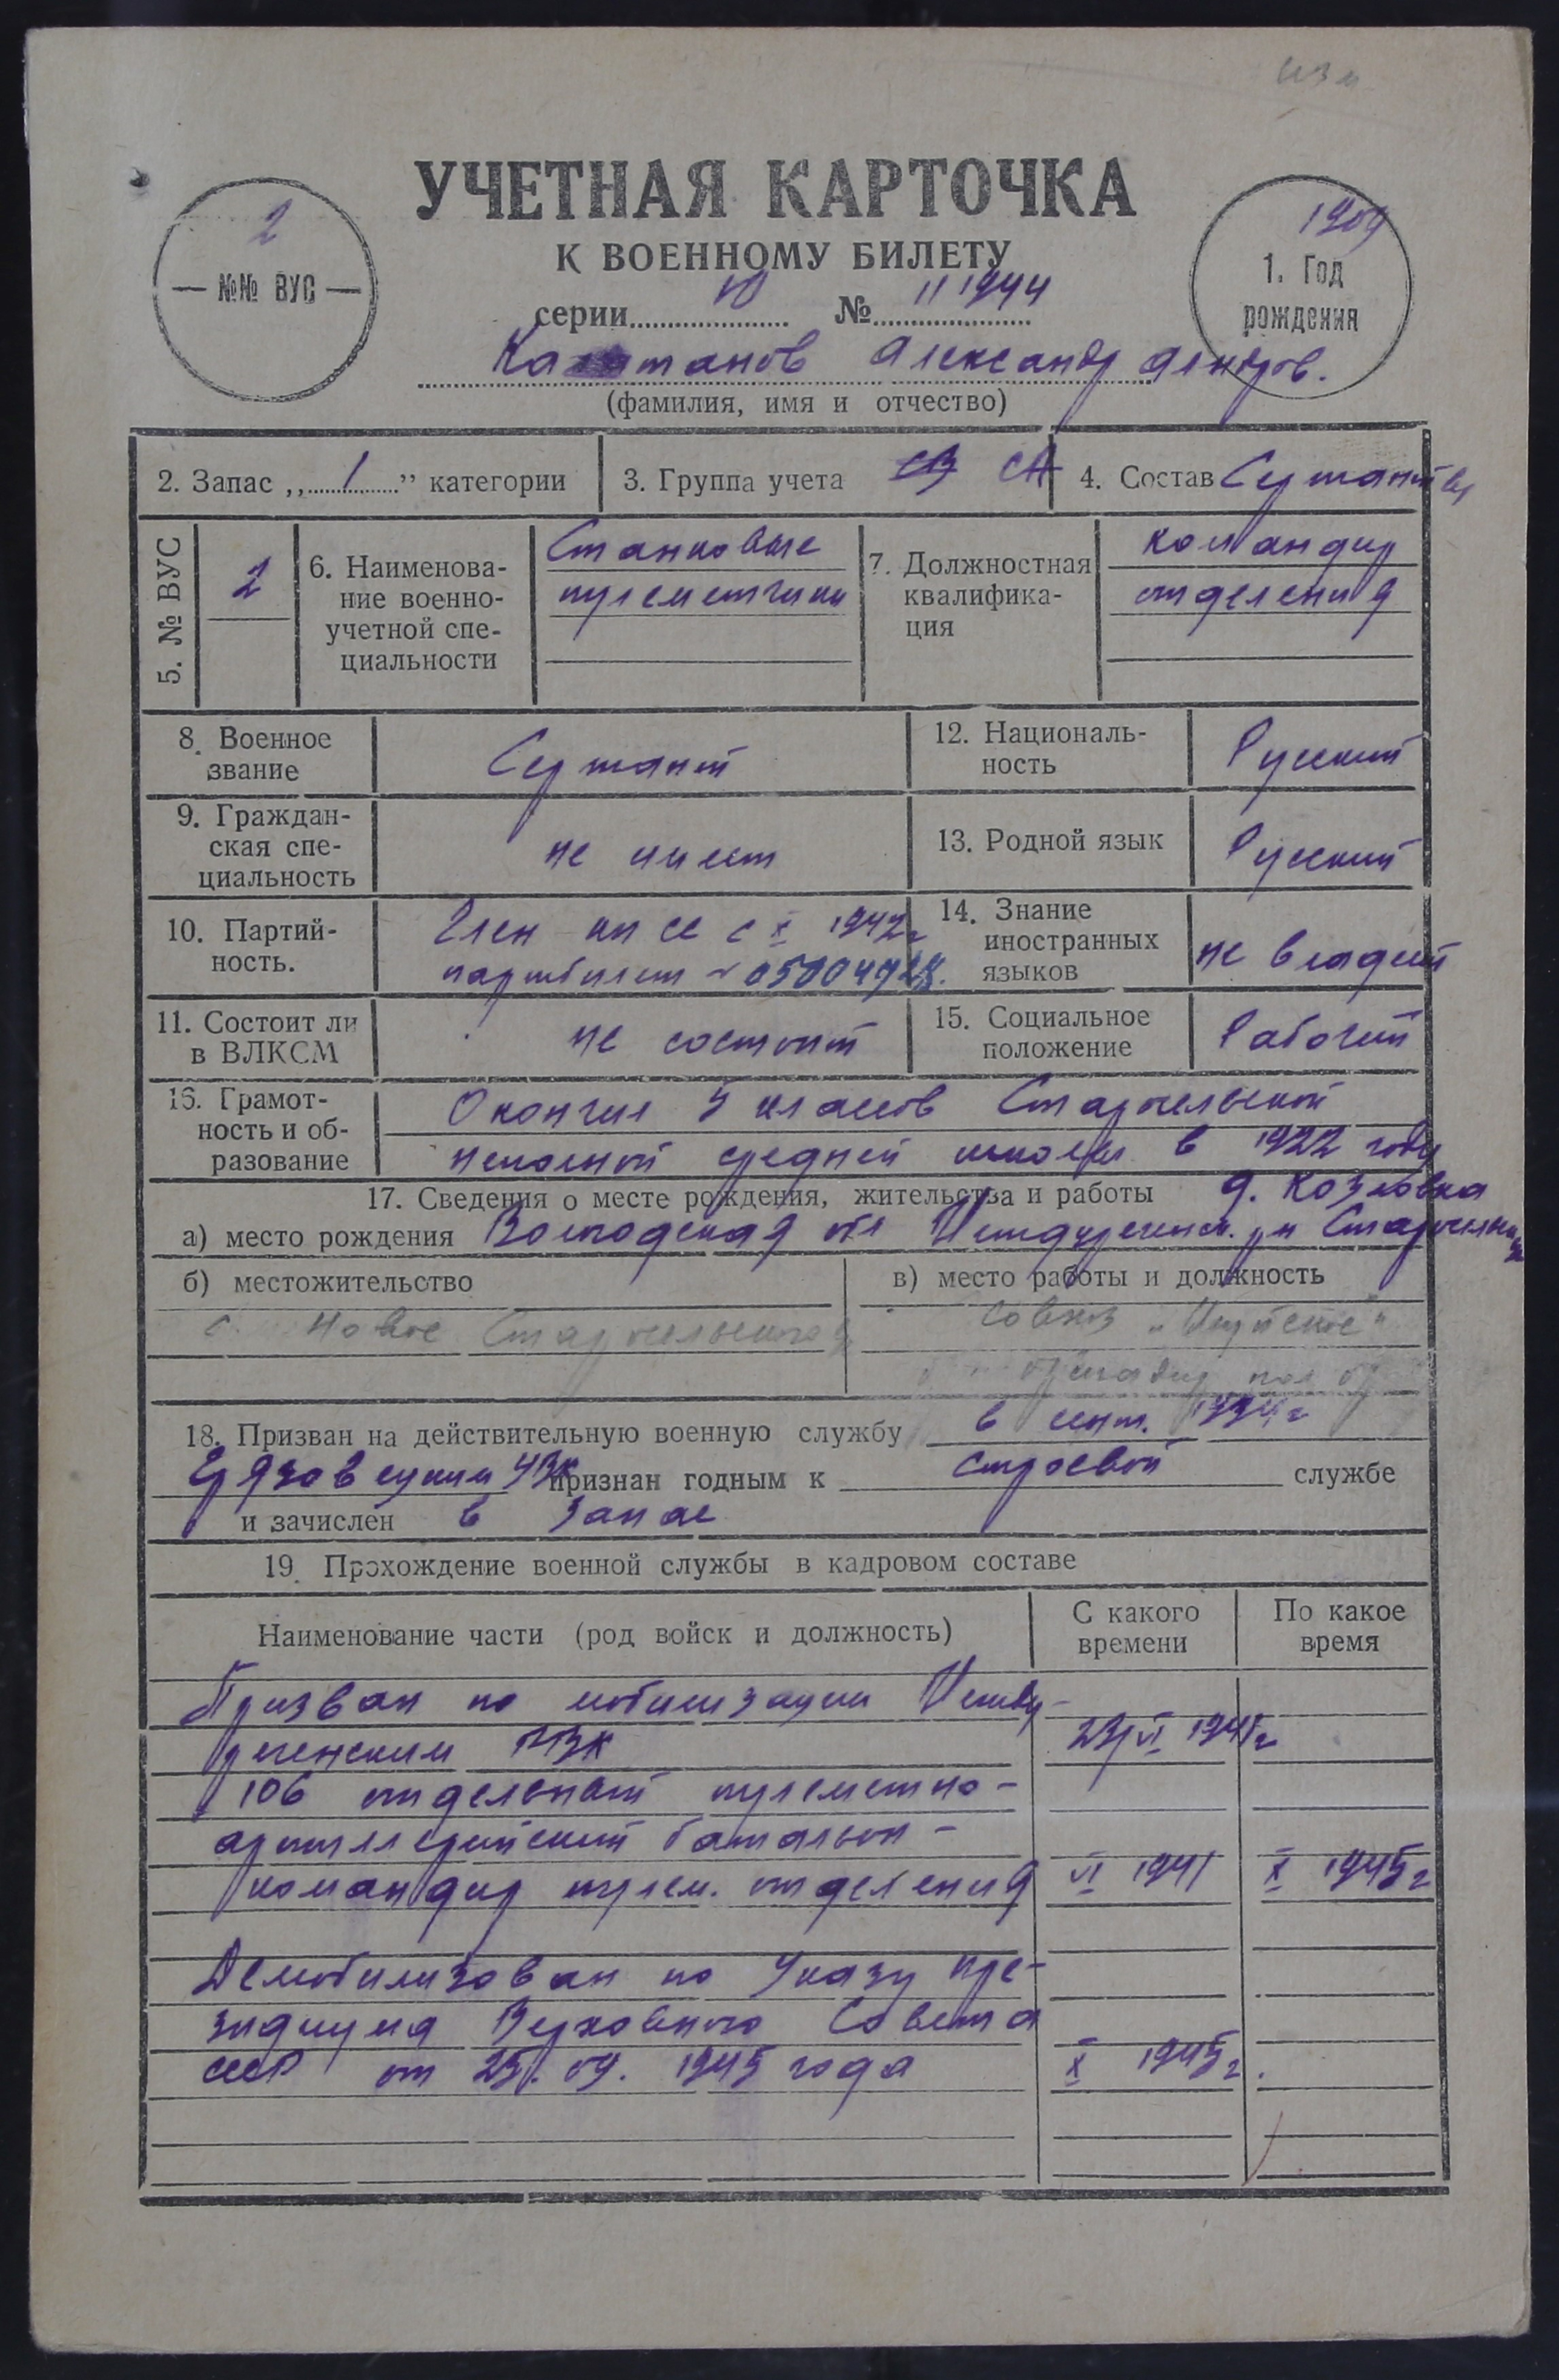 УЧЕТНАЯ КАРТОЧКА
К ВОЕННОМУ БИЛЕТУ
2
— №№ ВУС —
1909
1. Год
рождения
серии Ю № 111944
Каштанов Александр Александров.
(фамилия, имя и отчество)
2. Запас „ 1 ” категории
3. Группа учета СВ СА
4. Состав Сержантск
5. № ВУС
2
6. Наименова-
ние военно-
учетной спе-
циальности
Станковые
пулеметчики
7. Должностная
квалифика-
ция
командир
отделения
8. Военное
звание
Сержант
12. Националь-
ность
Русский
9. Граждан-
ская спе-
циальность
не имеет
13. Родной язык
Русский
10. Партий-
ность.
Член КПСС с X 1942г
партбилет №
14. Знание
иностранных
языков
не владеет
11. Состоит ли
в ВЛКСМ
не состоит
15. Социальное
положение
Рабочий
16. Грамот-
ность и об-
разование
Окончил 5 классов Старосельской
неполной средней школы в 1922 году
17. Сведения о месте рождения, жительства и работы д. Козловка
а) место рождения Вологодская обл Междуреченск. рн Старосельск
б) местожительство
с. Новое Старосельского
в) место работы и должность
Совхоз
бригадир
18. Призван на действительную военную службу в сент. 1931г
Грязовецким УВК признан годным к строевой службе
и зачислен в запас
19. Прохождение военной службы в кадровом составе
Наименование части (род войск и должность)
С какого
времени
По какое
время
Призван по мобилизации Между-
реченским РВК 23/VI 1941г
106 отдельный пулеметно-
артиллерийский батальон -
командир пулем. отделения VI 1941 X 1945г
Демобилизован по Указу Пре-
зидиума Верховного Совета
СССР от 25.09. 1945 года X 1945г.